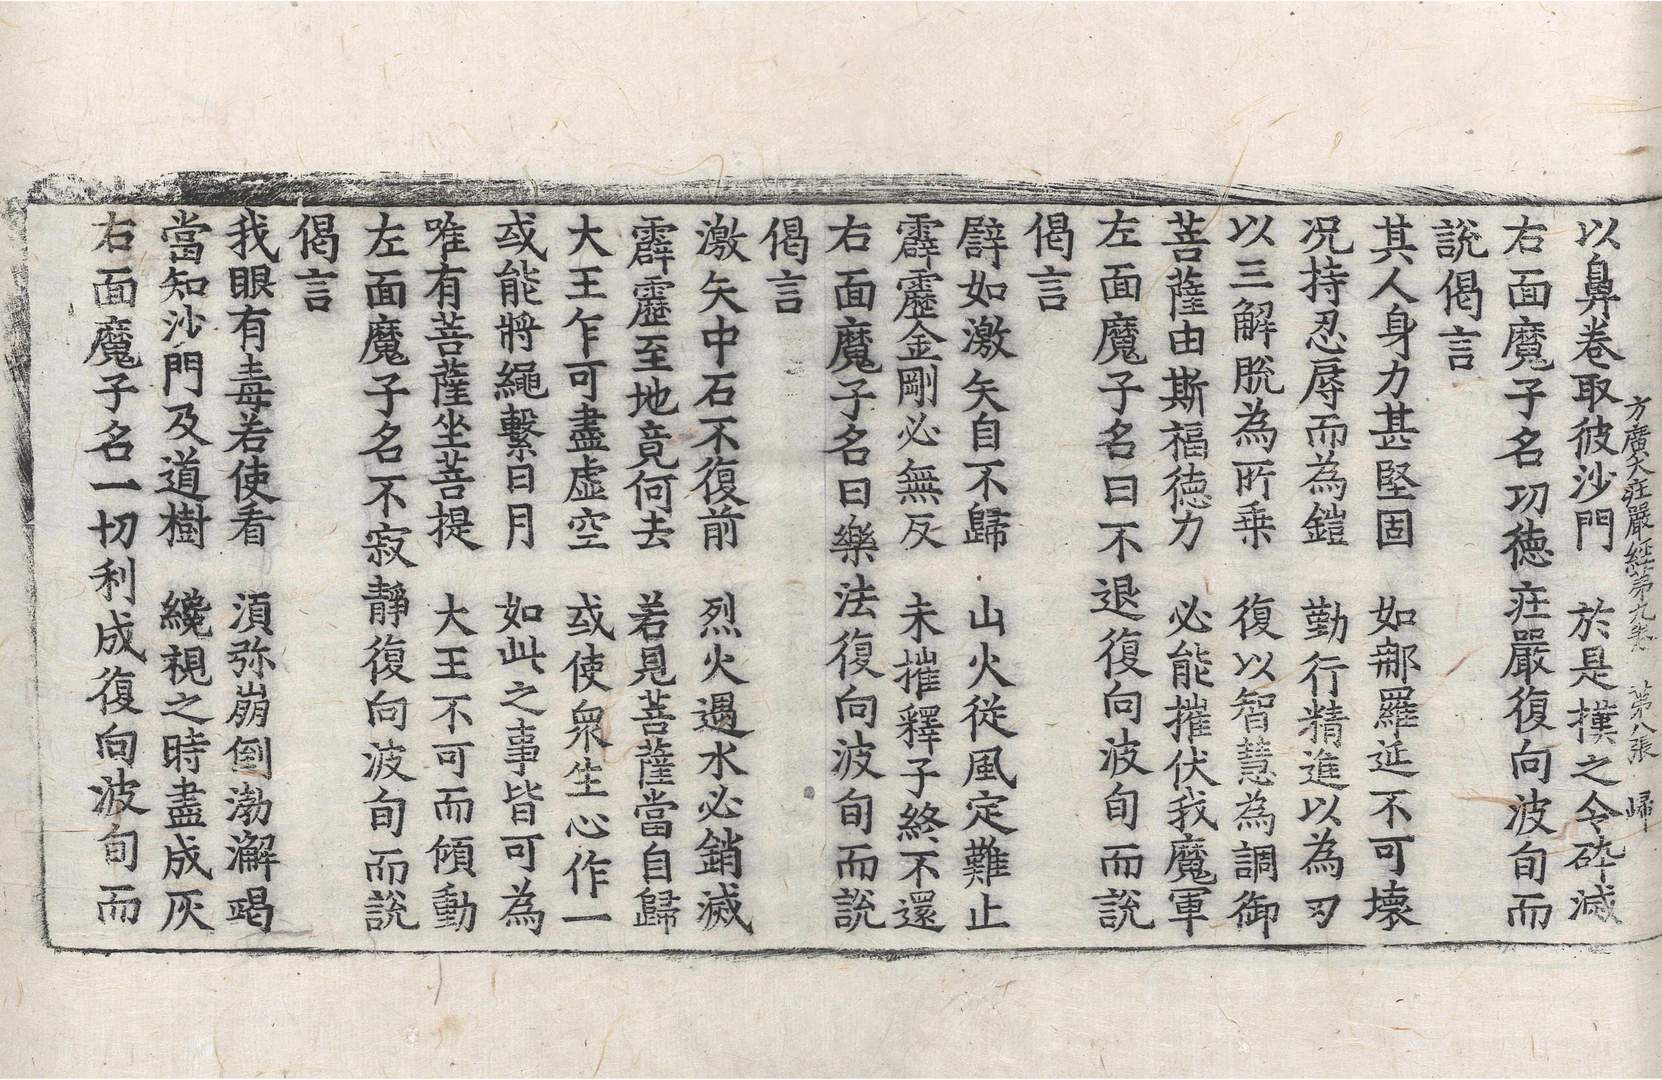 方廣大莊嚴經第九卷 第八張 歸
以鼻卷取彼沙門 於是撲之令碎滅
右面魔子名功德莊嚴復向波旬而
說偈言
其人身力甚堅固 如那羅延不可壞
況持忍辱而為鎧 勤行精進以為刃
以三解脫為所乘 復以智慧為調御
菩薩由斯福德力 必能摧伏我魔軍
左面魔子名曰不退復向波旬而說
偈言
譬如激矢自不歸 山火從風定難止
霹靂金剛必無反 未摧釋子終不還
右面魔子名曰樂法復向波旬而說
偈言
激矢中石不復前 烈火遇水必銷滅
霹靂至地竟何去 若見菩薩當自歸
大王乍可盡虛空 或使眾生心作一
或能將繩繫日月 如此之事皆可為
唯有菩薩坐菩提 大王不可而傾動
左面魔子名不寂靜復向波旬而說
偈言
我眼有毒若使看 須弥崩倒渤澥竭
當知沙門及道樹 纔視之時盡成灰
右面魔子名一切利成復向波旬而